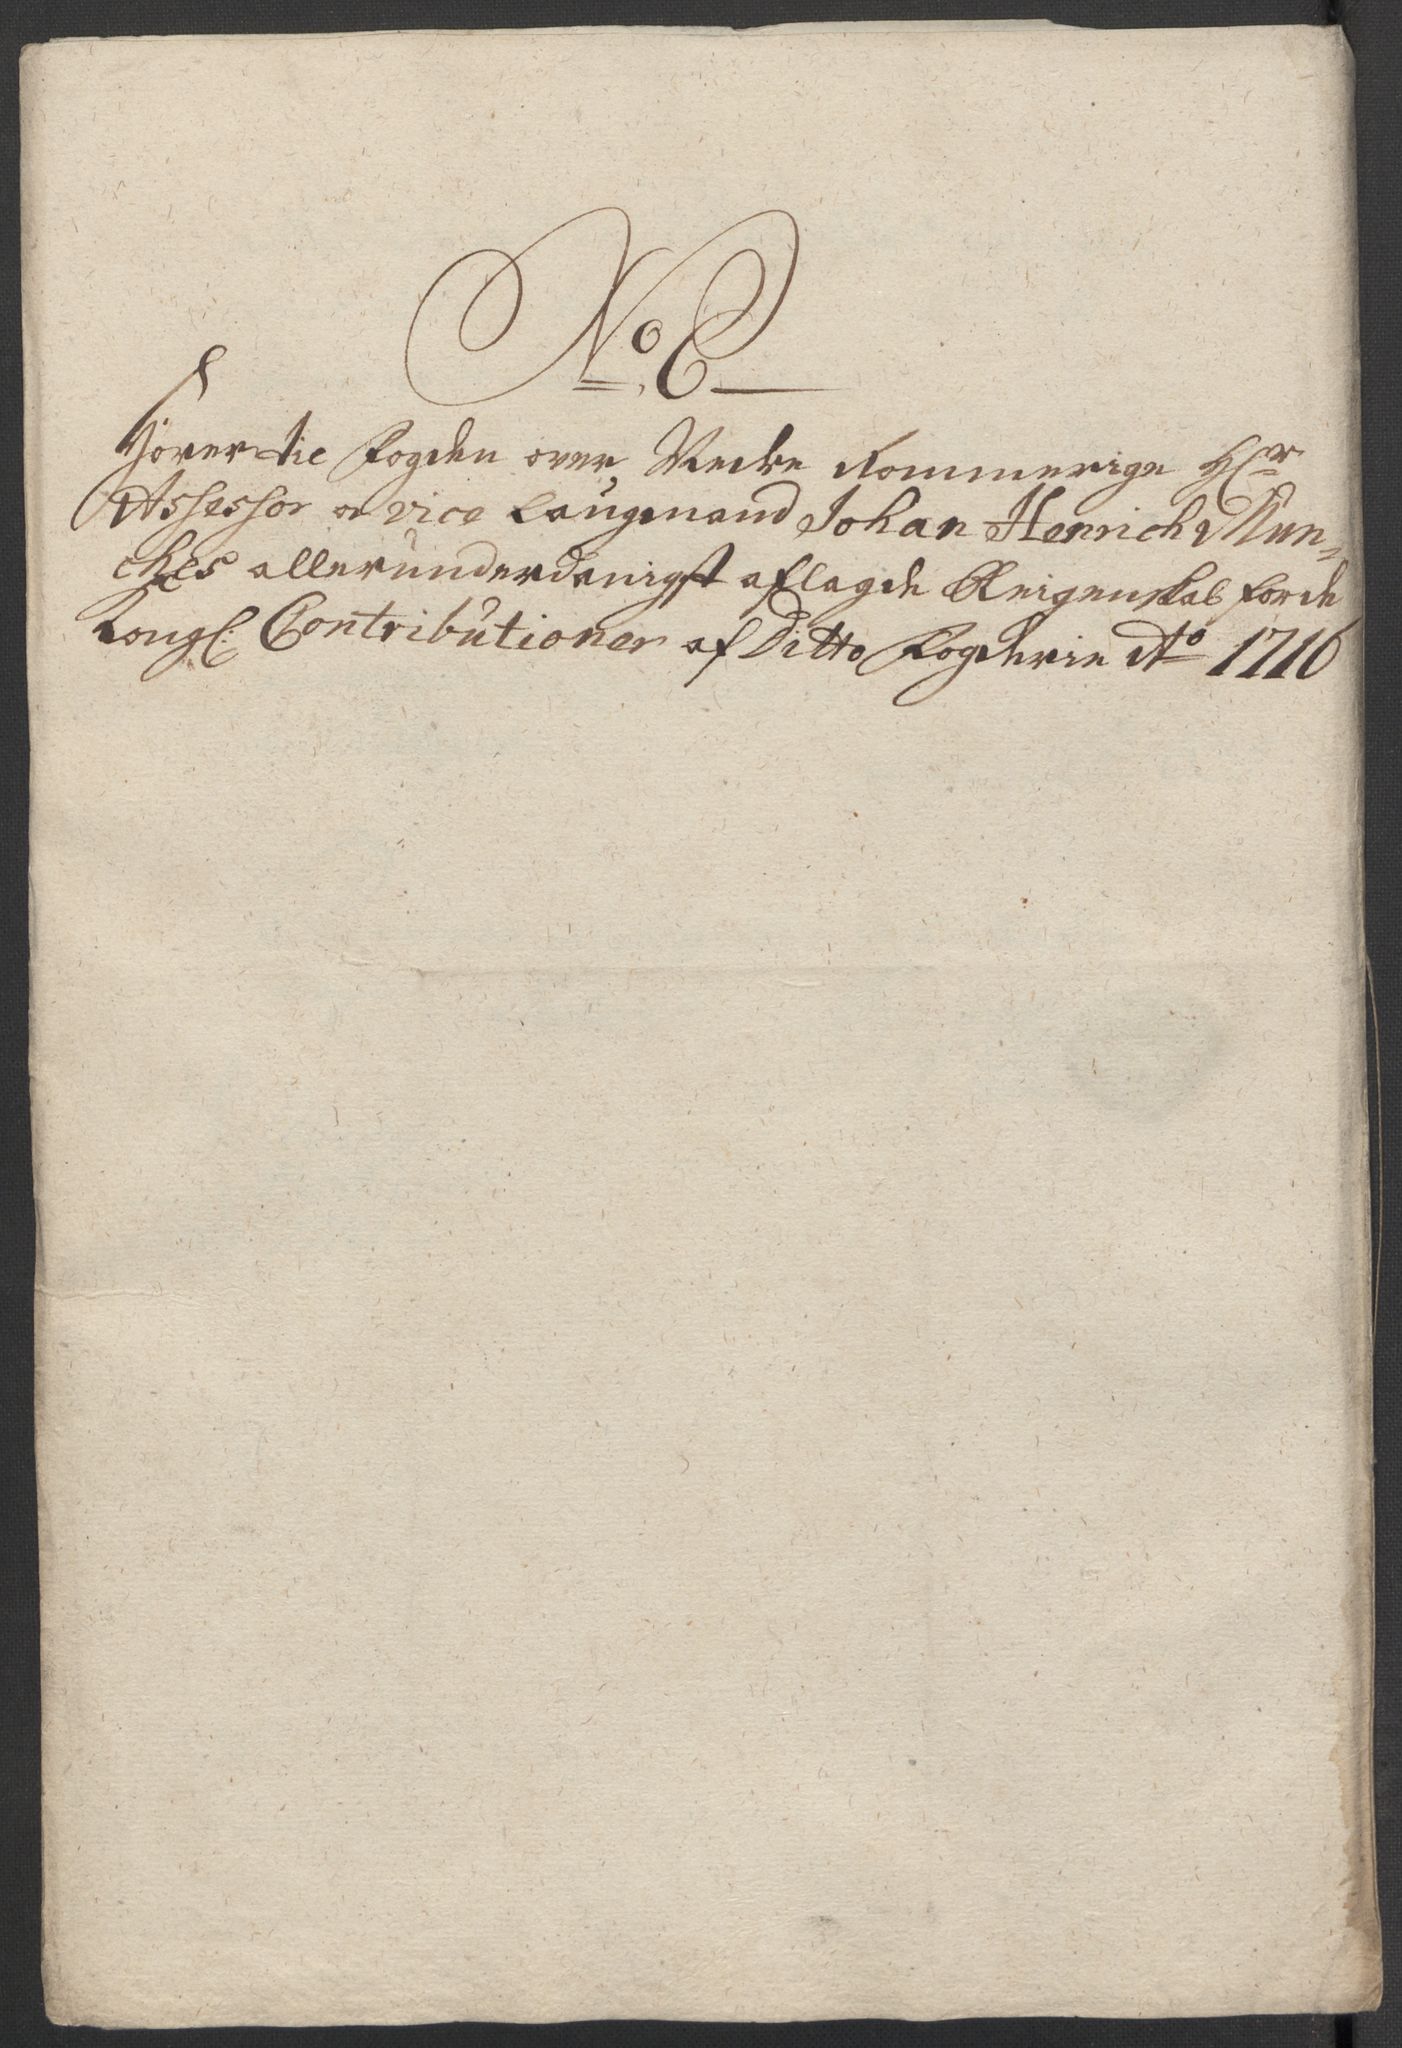 No. C
Hörer til Fogden over Nedre Rommerige Hr
Assessor og vice Laugmand Johan Henrich Mun-
ches allerunderdanigst aflagde Reigenskab for de
Kongl: Contributioner af Ditto Fogderie Ao 1716